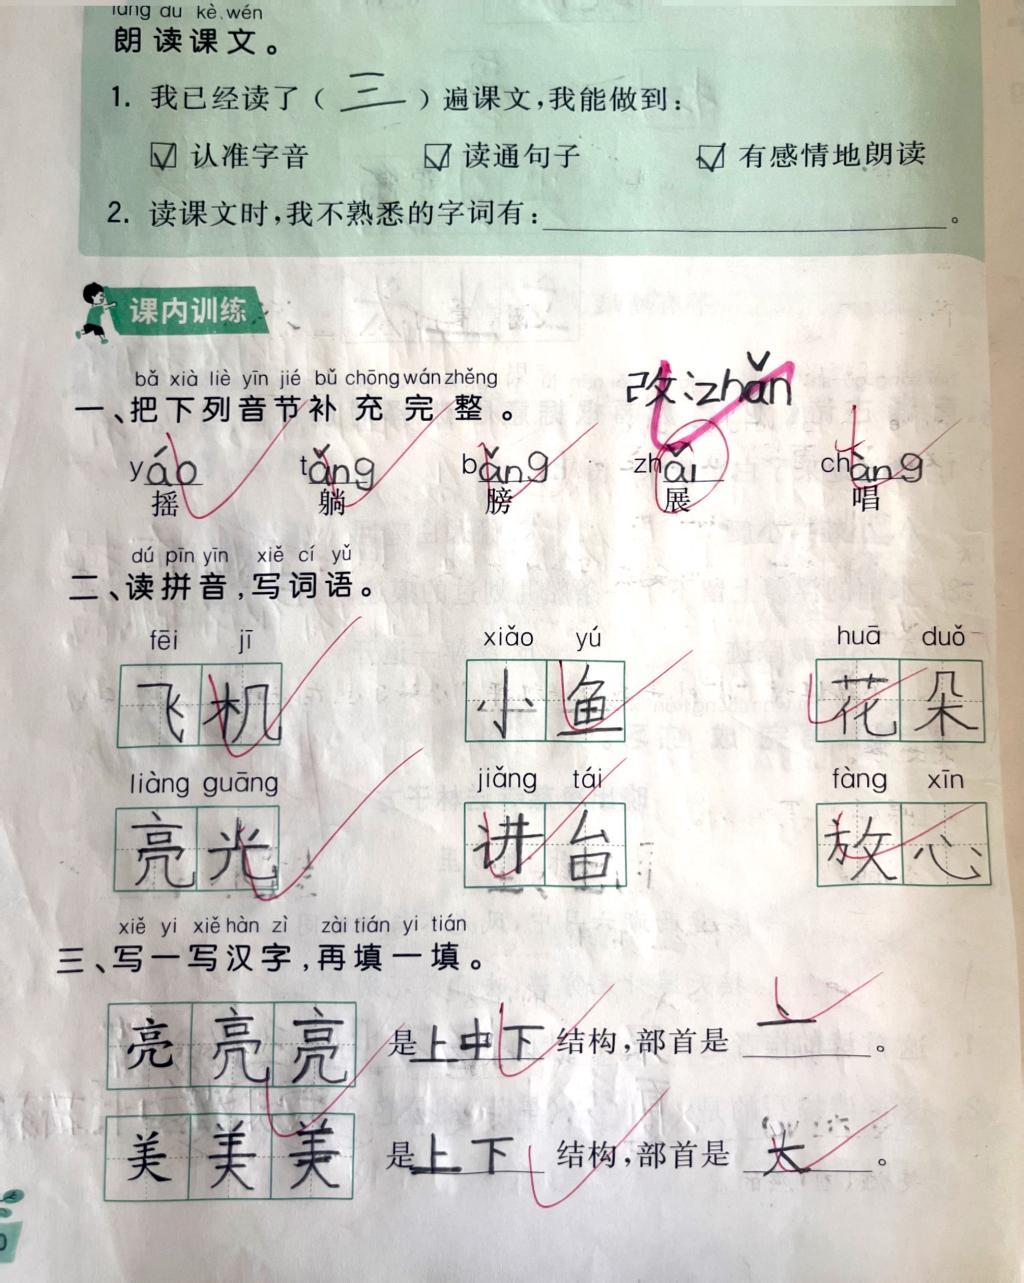 lǎng dú kè wén
朗读课文。
1. 我已经读了（ 三 ）遍课文,我能做到:
☑ 认准字音 ☑ 读通句子 ☑ 有感情地朗读
2. 读课文时,我不熟悉的字词有:____。
课内训练
bǎ xià liè yīn jié bǔ chōng wán zhěng
一、把下列音节补充完整。
改:zhǎn
yáo tǎng bǎng zhǎi chàng
摇 躺 膀 展 唱
dú pīn yīn xiě cí yǔ
二、读拼音,写词语。
fēi jī xiǎo yú huā duǒ
飞机 小鱼 花朵
liàng guāng jiǎng tái fàng xīn
亮光 讲台 放心
xiě yi xiě hàn zì zài tián yi tián
三、写一写汉字,再填一填。
亮 亮 亮 是上中下结构,部首是亠。
美 美 美 是上下结构,部首是大。
0